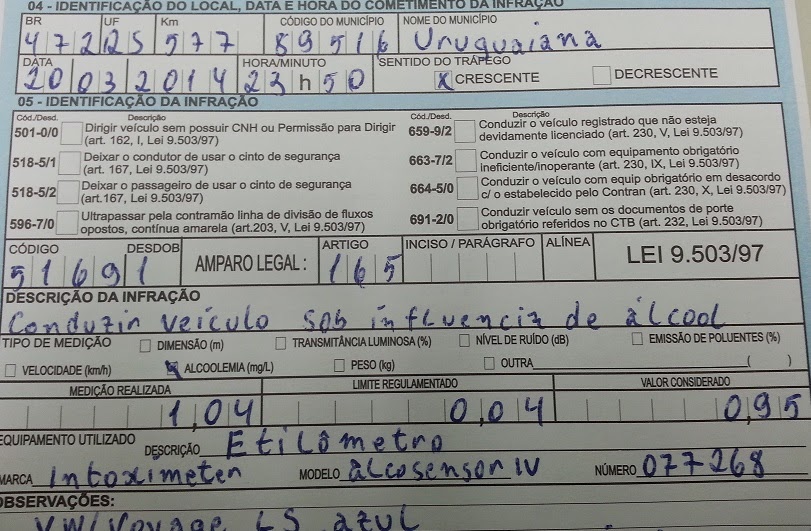 04 - IDENTIFICAÇÃO DO LOCAL, DATA E HORA DO COMETIMENTO DA INFRAÇÃO
BR UF Km CÓDIGO DO MUNICÍPIO NOME DO MUNICÍPIO
472 25 577 89516 Uruguaiana
DATA HORA/MINUTO SENTIDO DO TRÁFEGO
20032014 23 h 50 X CRESCENTE DECRESCENTE
05 - IDENTIFICAÇÃO DA INFRAÇÃO
Cód./Desd. Descrição Cód./Desd. Descrição
501-0/0 Dirigir veículo sem possuir CNH ou Permissão para Dirigir (art. 162, I, Lei 9.503/97)
659-9/2 Conduzir o veículo registrado que não esteja devidamente licenciado (art. 230, V, Lei 9.503/97)
518-5/1 Deixar o condutor de usar o cinto de segurança (art. 167, Lei 9.503/97)
663-7/2 Conduzir o veículo com equipamento obrigatório ineficiente/inoperante (art. 230, IX, Lei 9.503/97)
518-5/2 Deixar o passageiro de usar o cinto de segurança (art.167, Lei 9.503/97)
664-5/0 Conduzir o veículo com equip obrigatório em desacordo c/ o estabelecido pelo Contran (art. 230, X, Lei 9.503/97)
596-7/0 Ultrapassar pela contramão linha de divisão de fluxos opostos, contínua amarela (art.203, V, Lei 9.503/97)
691-2/0 Conduzir veículo sem os documentos de porte obrigatório referidos no CTB (art. 232, Lei 9.503/97)
CÓDIGO DESDOB AMPARO LEGAL: ARTIGO INCISO / PARÁGRAFO ALÍNEA LEI 9.503/97
5169 1 165
DESCRIÇÃO DA INFRAÇÃO
Conduzir veículo sob influencia de álcool
TIPO DE MEDIÇÃO DIMENSÃO (m) TRANSMITÂNCIA LUMINOSA (%) NÍVEL DE RUÍDO (dB) EMISSÃO DE POLUENTES (%)
VELOCIDADE (km/h) X ALCOOLEMIA (mg/L) PESO (kg) OUTRA ( )
MEDIÇÃO REALIZADA LIMITE REGULAMENTADO VALOR CONSIDERADO
1,04 0,04 0,95
EQUIPAMENTO UTILIZADO DESCRIÇÃO Etilômetro
MARCA Intoximeter MODELO alcosensor IV NÚMERO 077268
OBSERVAÇÕES:
VW/Voyage LS azul